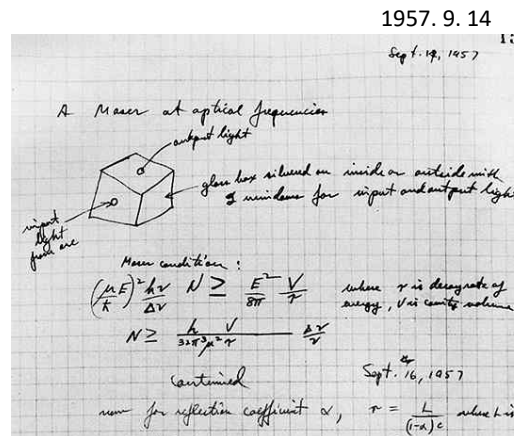 1957. 9. 14
Sept. 14, 1957
A Maser at optical frequencies
output light
glass box silvered on inside or outside with
2 windows for input and output light
input
light
from arc
Maser condition:
(μE/ħ)² hν/Δν N ≥ E²/8π V/τ where τ is decay rate of
energy, V is cavity volume
N ≥ h/32π³μ² V/τ Δν/ν
Continued
Sept. 16, 1957
now for reflection coefficient α, τ = L/(1-α)c where L is